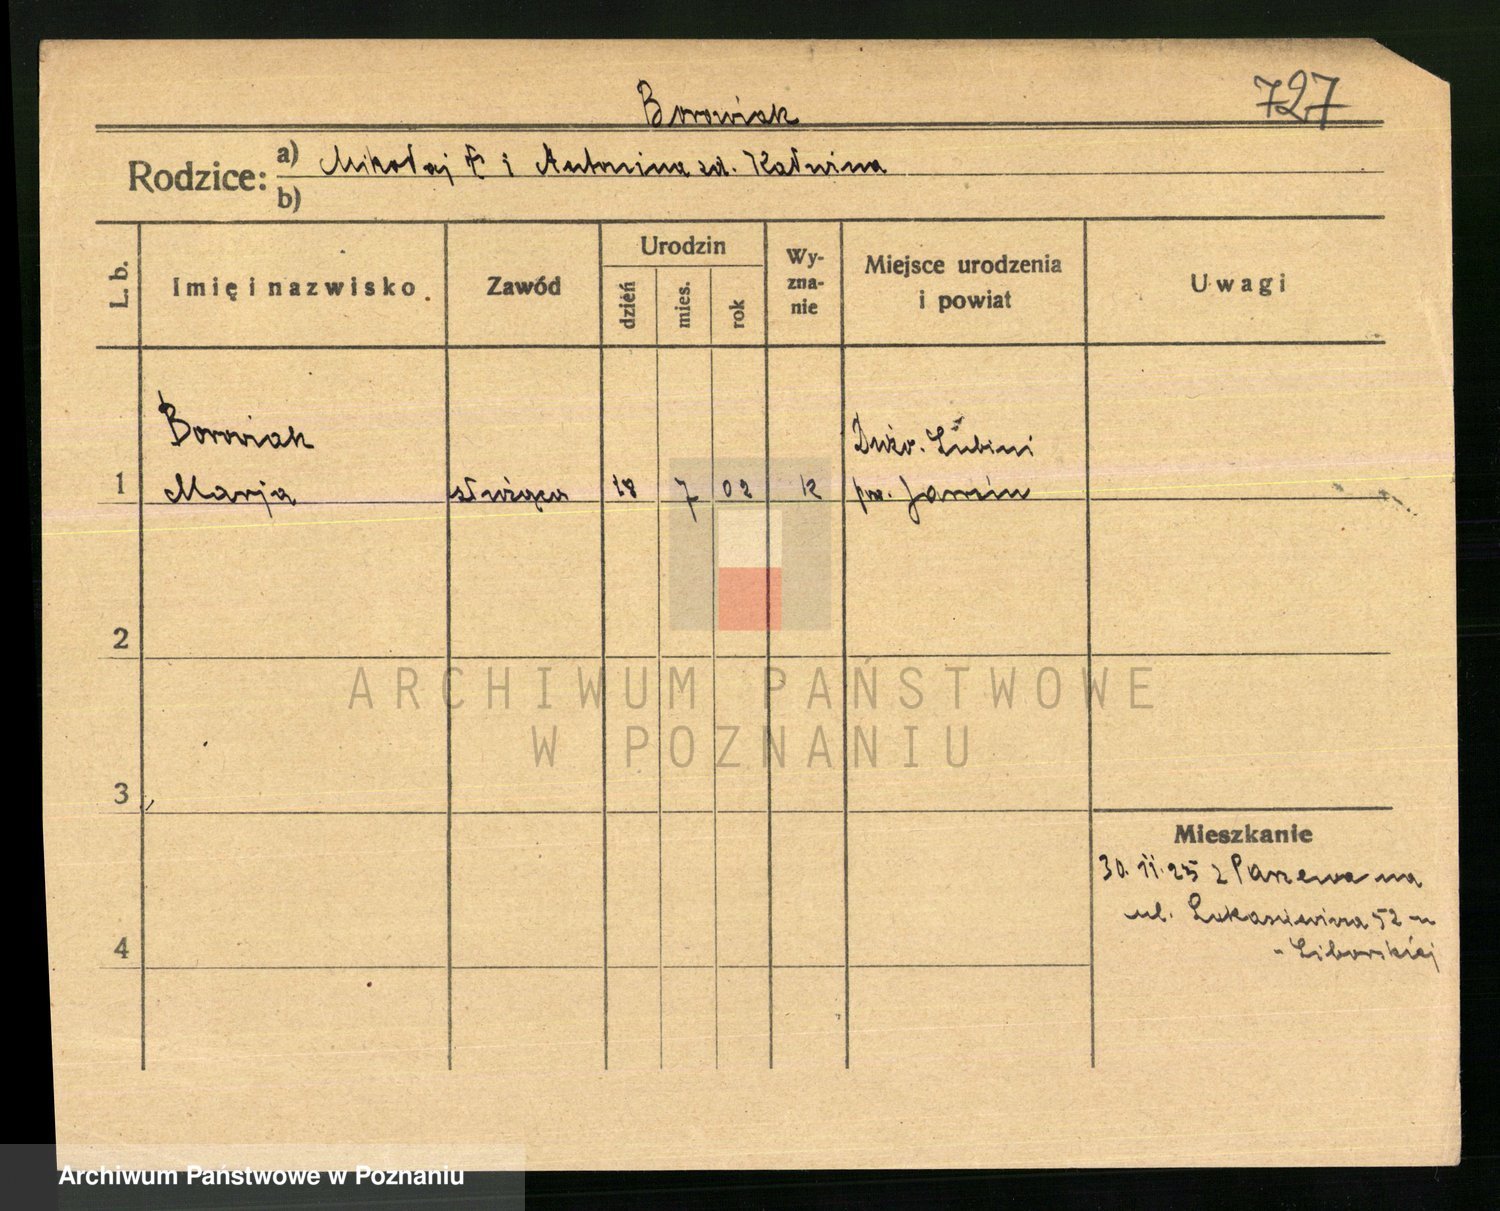 Borowiak
727
Rodzice: a) Mikołaj i Antonina zd.
b)
L. b.
Imię i nazwisko
Zawód
Urodzin
dzień
mies.
rok
Wy-
zna-
nie
Miejsce urodzenia
i powiat
Uwagi
Borowiak
Marja
1
służąca
18
7
02
K
pow. Jarocin
2
3
4
Mieszkanie
30. 11. 25 z Parzewa na
ul. Łukasiewicza 52
ARCHIWUM PAŃSTWOWE
W POZNANIU
Archiwum Państwowe w Poznaniu